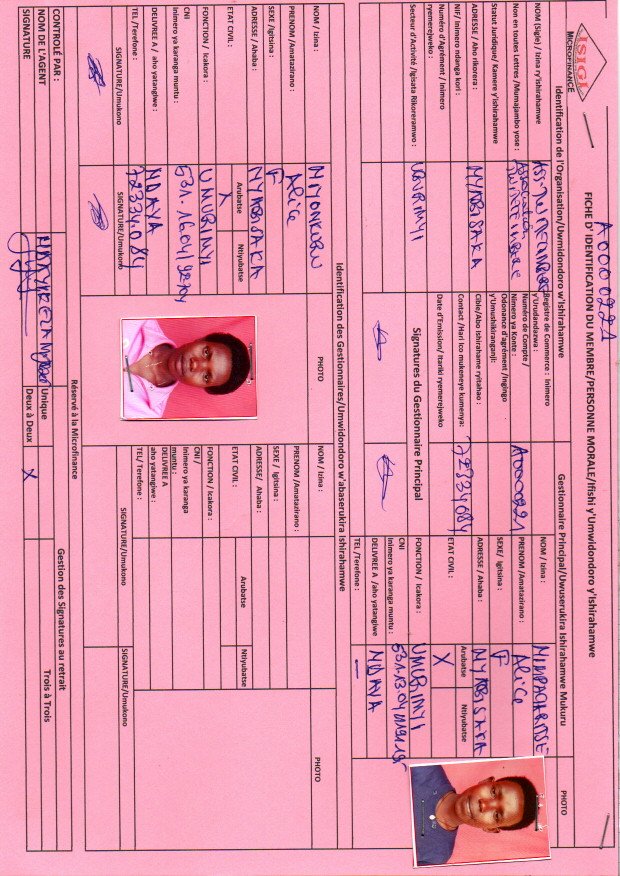 ISIGI
MICROFINANCE
A0000221
FICHE D' IDENTIFICATION DU MEMBRE/PERSONNE MORALE/Ifishi y'Umwidondoro y'Ishirahamwe
Identification de l'Organisation/Uwmidondoro w'Ishirahamwe
NOM (Sigle) / Izina ry'ishirahamwe
Non en toutes Lettres /Mumajambo yose :
Association
Statut Juridique/ Kamere y'Ishirahamwe
ADRESSE / Aho rikorera :
NYABISAKA
NIF/ Inimero ndanga kori :
Numéro d'Agrément / Inimero
ryemerejweko :
Secteur d'Activité /Igisata Rikoreramwo :
UBURIMYI
Registre de Commerce : Inimero
y'Urudandazwa :
Numéro de Compte /
Nimero ya Konte :
A0000221
Odonance d'agrément /Ingingo
y'Umushikiranganji:
Cible/Abo Ishirahame ryitahao :
Contact /Hari ico mukeneye kumenya:
72334084
Date d'Emission/ Itariki ryemerejweko
Signatures du Gestionnaire Principal
Gestionnaire Principal/Uwuserukira Ishirahamwe Mukuru
NOM / Izina :
PRENOM /Amatazirano :
Alice
SEXE/ Igitsina :
F
ADRESSE / Ahaba :
NYABISAKA
ETAT CIVIL :
Arubatse
Ntiyubatse
X
FONCTION / Icakora :
UMURIMYI
CNI
Inimero ya karanga muntu :
DELIVREE A /aho yatangiwe
NDAVA
TEL /Terefone :
—
PHOTO
Identification des Gestionnaires/Umwidondoro w'abaserukira Ishirahamwe
NOM / Izina :
NIYONKURU
PRENOM /Amatazirano :
Alice
SEXE /Igitsina :
F
ADRESSE / Ahaba :
NYABISAKA
ETAT CIVIL :
Arubatse
Ntiyubatse
X
FONCTION / Icakora :
UMURIMYI
CNI
Inimero ya karanga muntu :
DELIVREE A / aho yatangiwe :
NDAVA
TEL /Terefone :
72334084
SIGNATURE/Umukono
SIGNATURE/Umukono
PHOTO
NOM / Izina :
PRENOM /Amatazirano :
SEXE / Igitsina :
ADRESSE/ Ahaba :
ETAT CIVIL :
Arubatse
Ntiyubatse
FONCTION / Icakora :
CNI /
Inimero ya karanga
muntu :
DELIVREE A
aho yatangiwe :
TEL/ Terefone :
SIGNATURE/Umukono
SIGNATURE/Umukono
PHOTO
Réservé à la Microfinance
CONTROLÉ PAR :
NOM DE L'AGENT
SIGNATURE
Gestion des Signatures au retrait
Unique
Deux à Deux
X
Trois à Trois